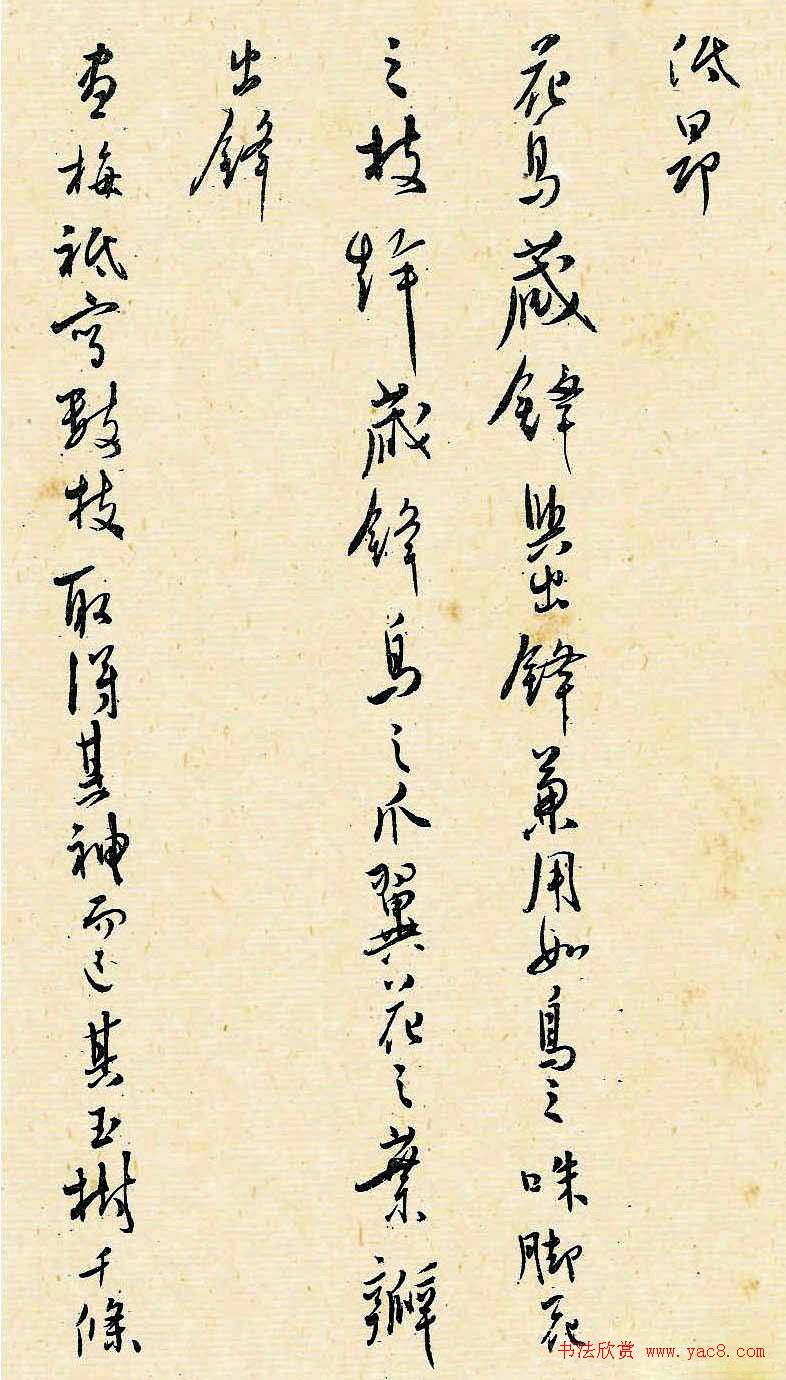 低昂
花鳥藏鋒與出鋒兼用如鳥之咮脚花
之枝幹藏鋒鳥之爪翼花之葉瓣
出鋒
畫梅祗寫數枝取得其神而已其玉樹千條
书法欣赏 www.yac8.com